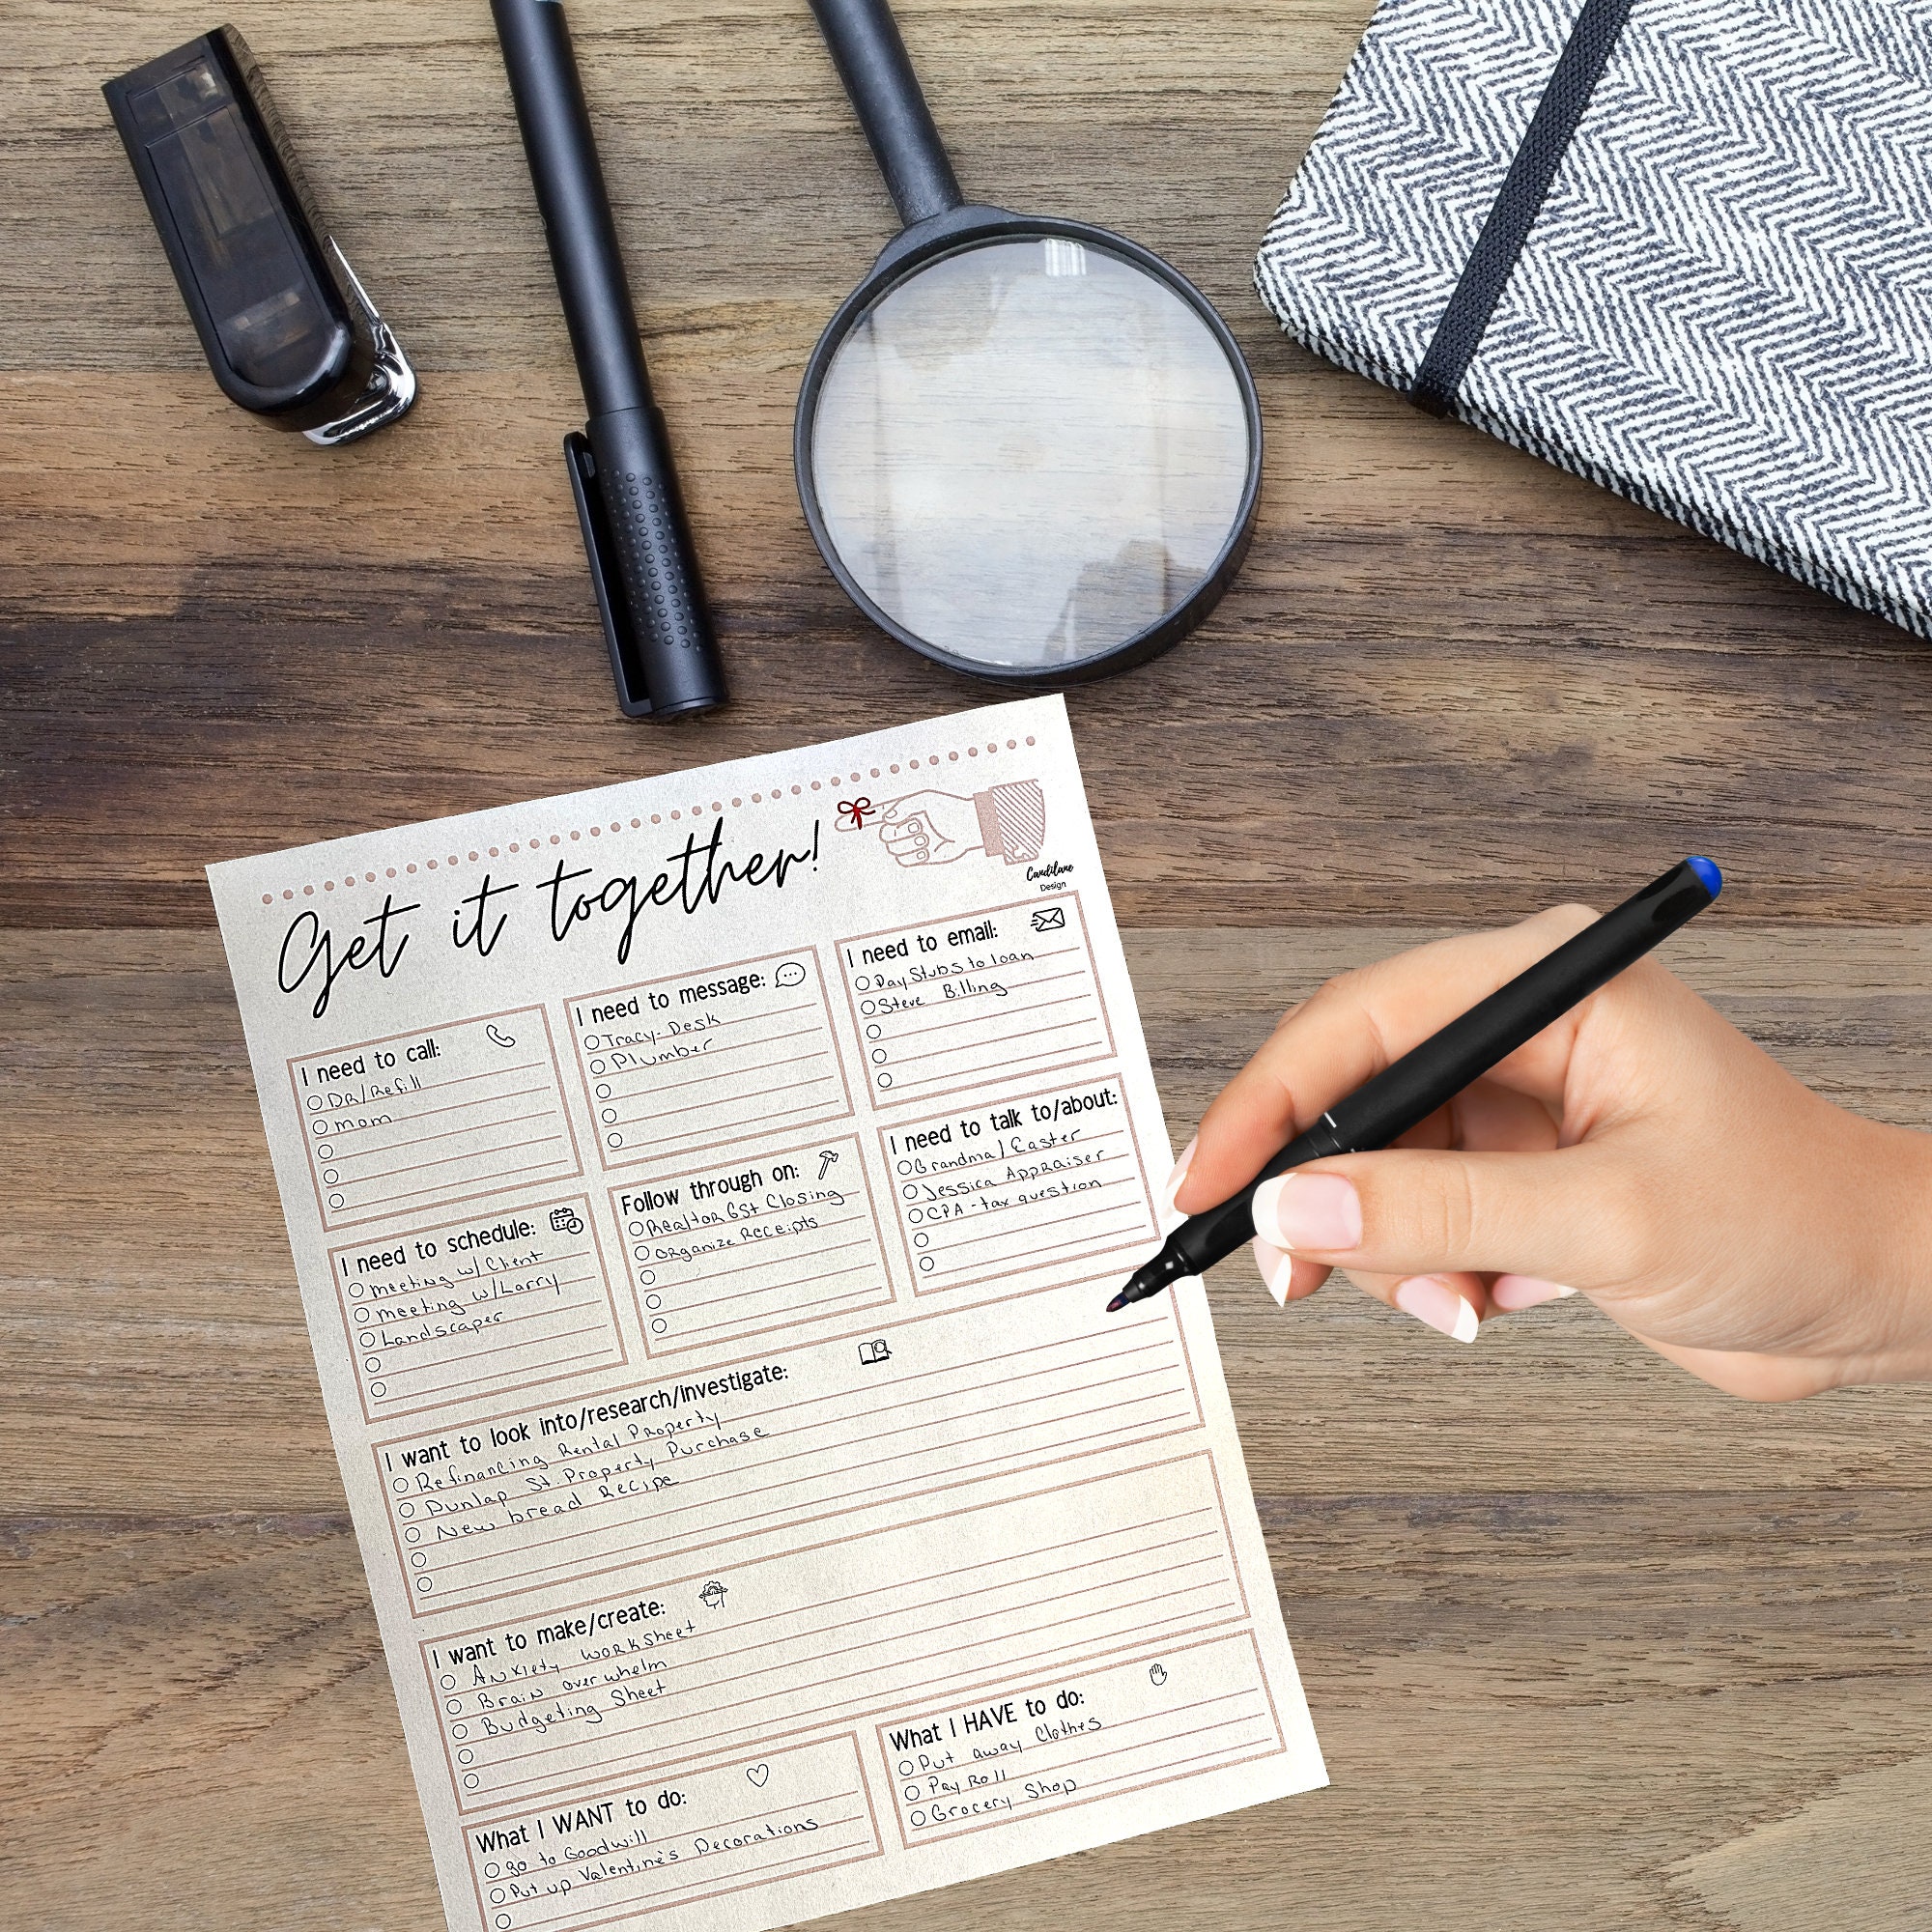 Get it together!
Candilane
Design
I need to call:
DR/Refill
mom
I need to message:
Tracy-Desk
Plumber
I need to email:
Pay Stubs to loan
Steve Billing
I need to schedule:
meeting w/Client
meeting w/Larry
Landscaper
Follow through on:
Realtor GSt Closing
Organize Receipts
I need to talk to/about:
Grandma/Easter
Jessica Appraiser
CPA-tax question
I want to look into/research/investigate:
Refinancing Rental Property
Dunlap St. Property Purchase
New bread Recipe
I want to make/create:
Anxiety worksheet
Brain overwhelm
Budgeting Sheet
What I WANT to do:
go to Goodwill
Put up Valentine's Decorations
What I HAVE to do:
Put away Clothes
Pay Roll
Grocery Shop